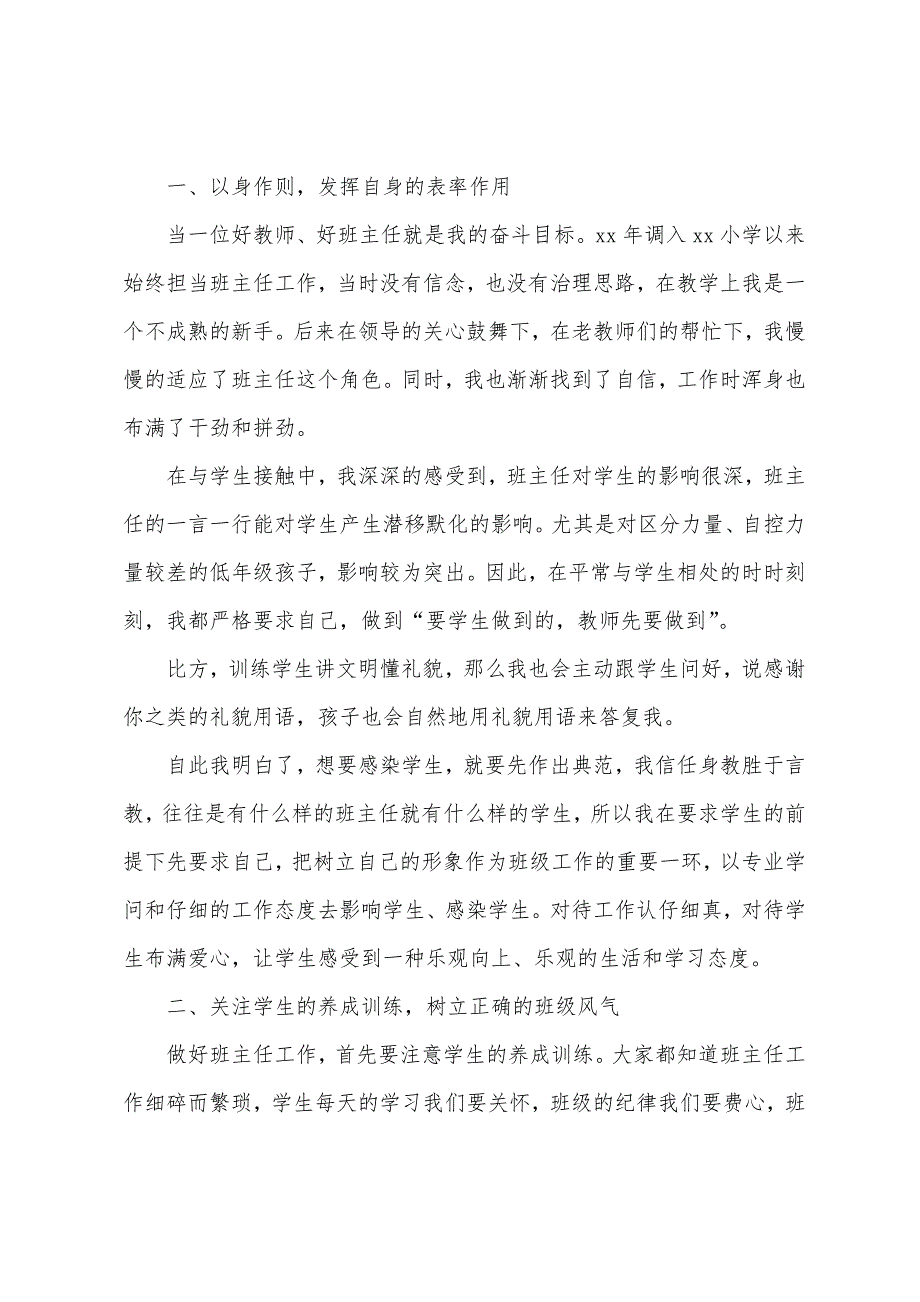 一、以身作则，发挥自身的表率作用
当一位好教师、好班主任就是我的奋斗目标。xx 年调入 xx 小学以来
始终担当班主任工作，当时没有信念，也没有治理思路，在教学上我是一
个不成熟的新手。后来在领导的关心鼓舞下，在老教师们的帮忙下，我慢
慢的适应了班主任这个角色。同时，我也渐渐找到了自信，工作时浑身也
布满了干劲和拼劲。
在与学生接触中，我深深的感受到，班主任对学生的影响很深，班主
任的一言一行能对学生产生潜移默化的影响。尤其是对区分力量、自控力
量较差的低年级孩子，影响较为突出。因此，在平常与学生相处的时时刻
刻，我都严格要求自己，做到“要学生做到的，教师先要做到”。
比方，训练学生讲文明懂礼貌，那么我也会主动跟学生问好，说感谢
你之类的礼貌用语，孩子也会自然地用礼貌用语来答复我。
自此我明白了，想要感染学生，就要先作出典范，我信任身教胜于言
教，往往是有什么样的班主任就有什么样的学生，所以我在要求学生的前
提下先要求自己，把树立自己的形象作为班级工作的重要一环，以专业学
问和仔细的工作态度去影响学生、感染学生。对待工作认仔细真，对待学
生布满爱心，让学生感受到一种乐观向上、乐观的生活和学习态度。
二、关注学生的养成训练，树立正确的班级风气
做好班主任工作，首先要注意学生的养成训练。大家都知道班主任工
作细碎而繁琐，学生每天的学习我们要关怀，班级的纪律我们要费心，班